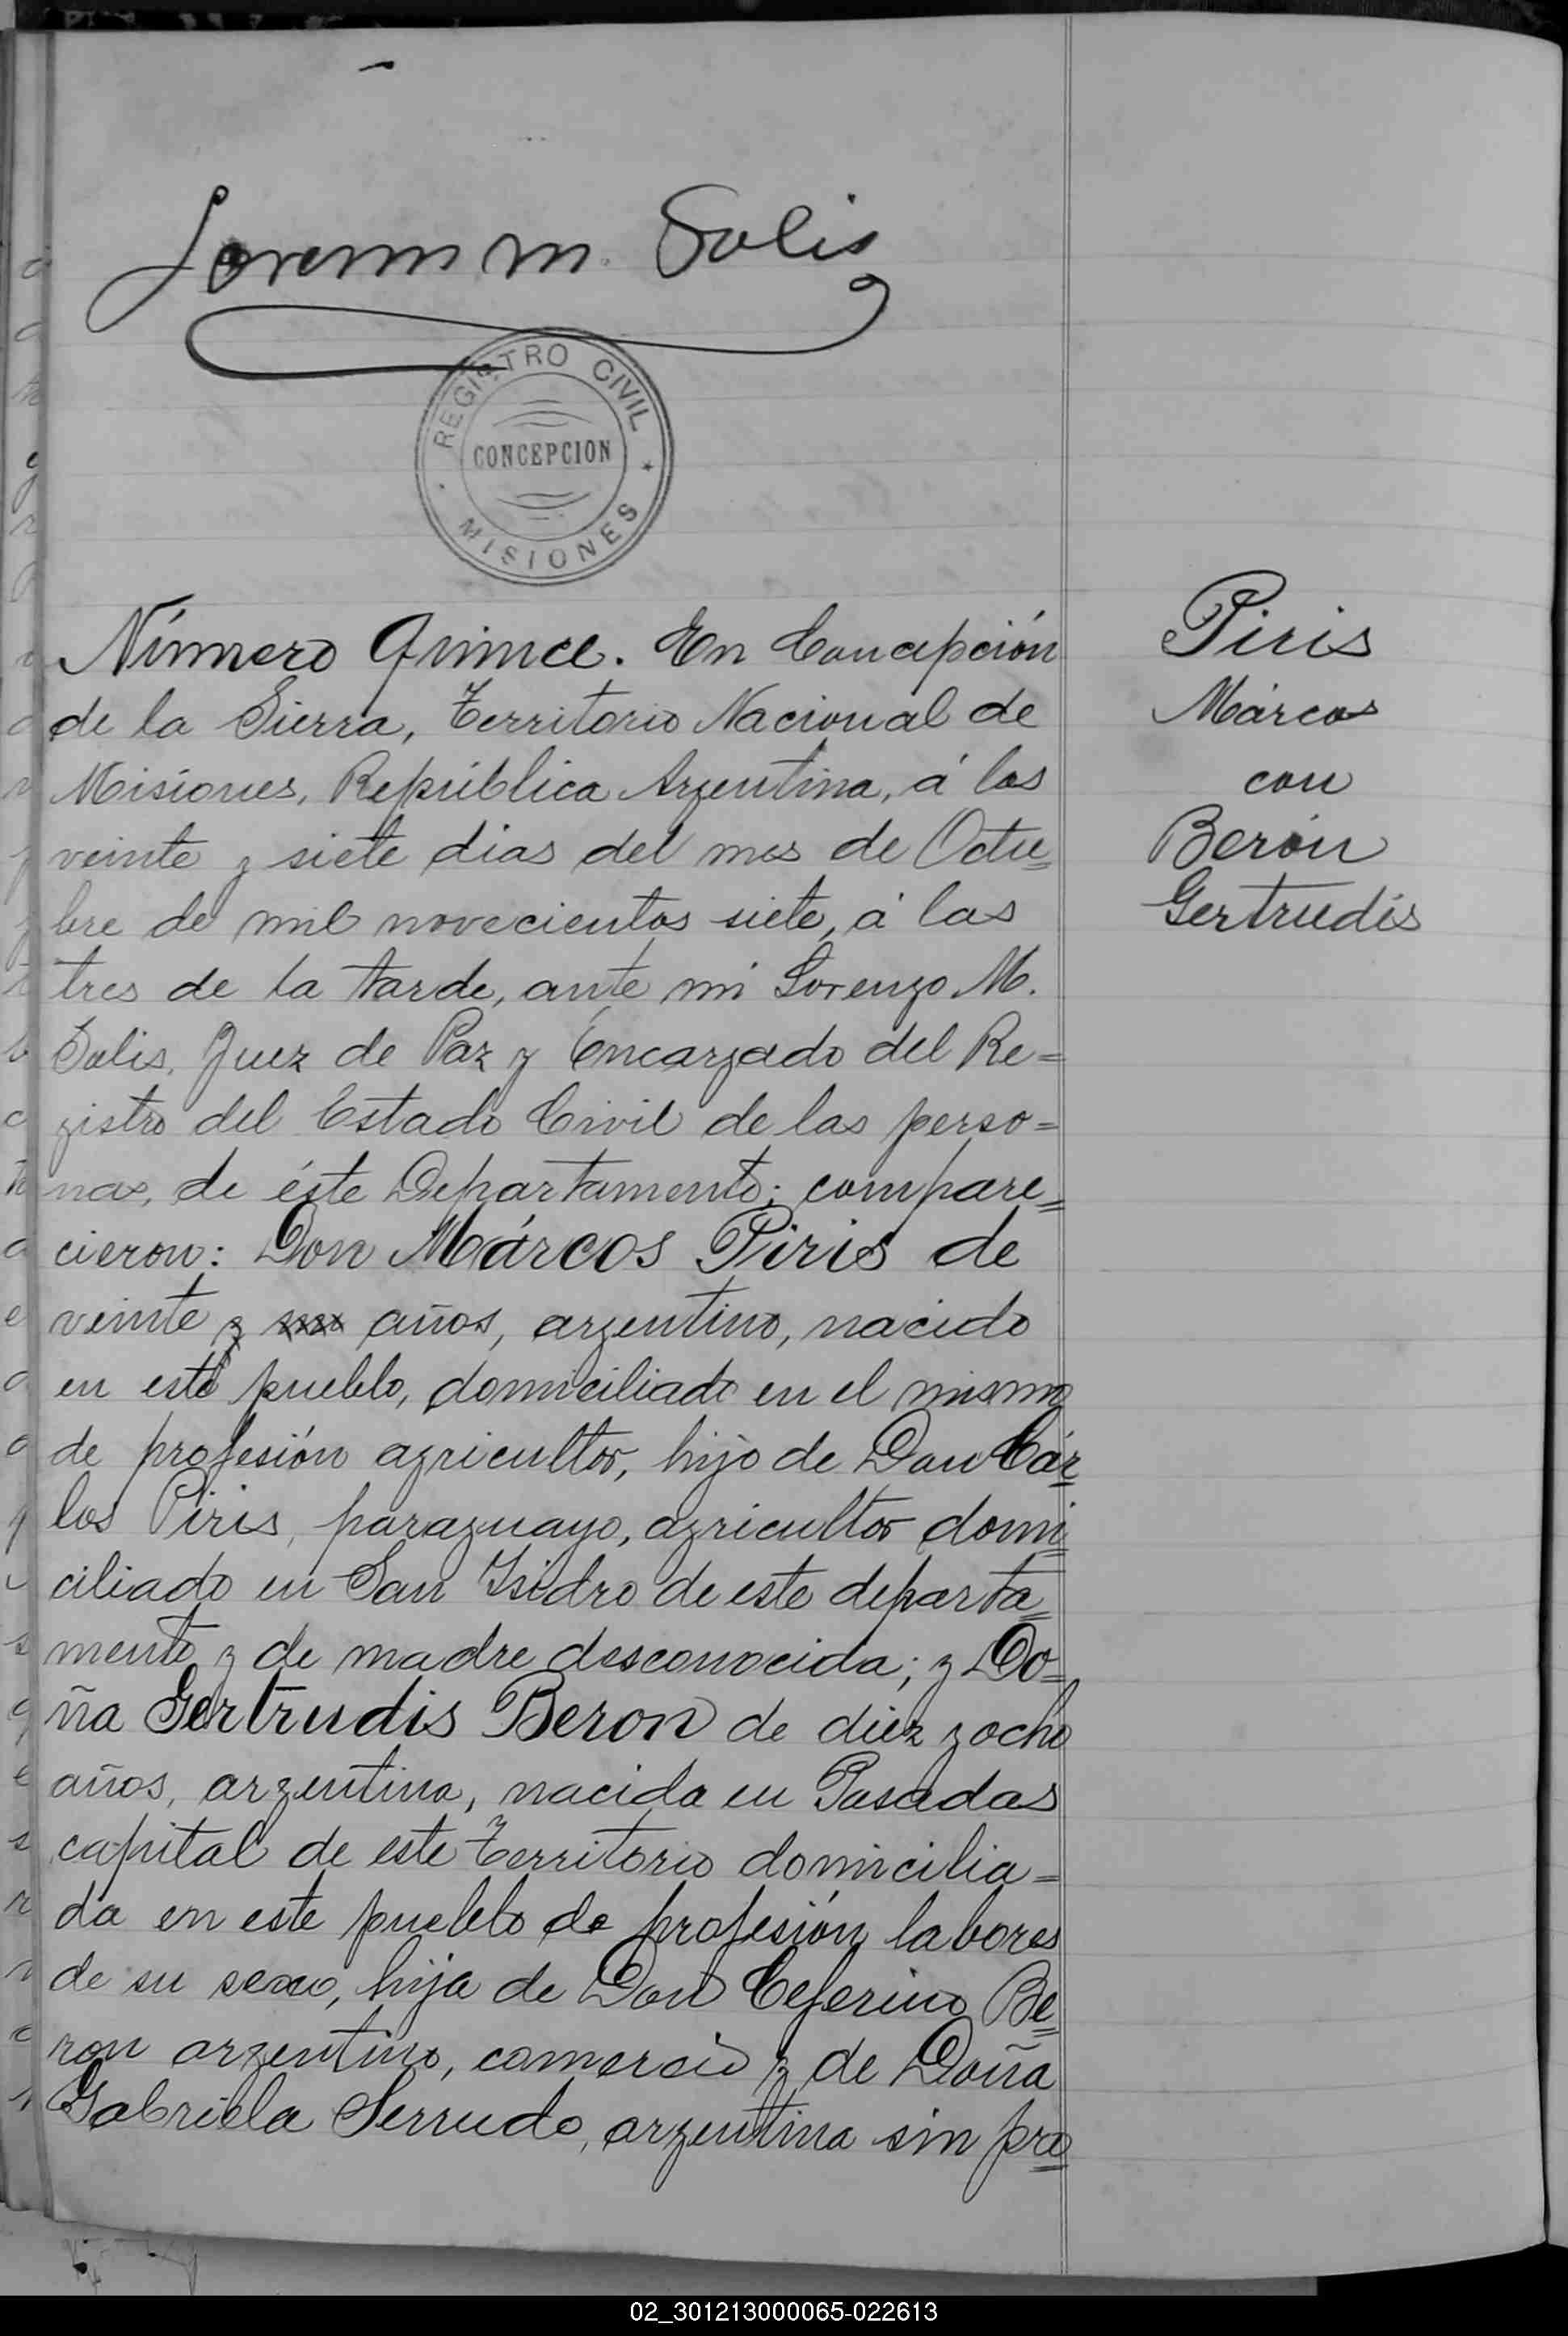 Lorenzo M. Solis
REGISTRO CIVIL
CONCEPCION
MISIONES
Piris
Márcos
con
Berón
Gertrudis
Número Quince. En Concepción
de la Sierra, Territorio Nacional de
Misiones, República Argentina, á los
veinte y siete dias del mes de Octu=
bre de mil novecientos siete, á las
tres de la tarde, ante mi Lorenzo M.
Solis, Juez de Paz y Encargado del Re=
gistro del Estado Civil de las perso=
nas, de éste Departamento; compare=
cieron: Don Márcos Piris de
veinte y años, argentino, nacido
en este pueblo, domiciliado en el mismo
de profesión agricultor, hijo de Don Cár=
los Piris, paraguayo, agricultor domi=
ciliado en San Isidro de este departa=
mento y de madre desconocida; y Do=
ña Gertrudis Beron de diez y ocho
años, argentina, nacida en Posadas
capital de este Territorio domicilia=
da en este pueblo de profesión labores
de su sexo, hija de Don Ceferino Be=
ron argentino, comercio y de Doña
Gabriela Serrudo, argentina sin pro=
02_301213000065-022613